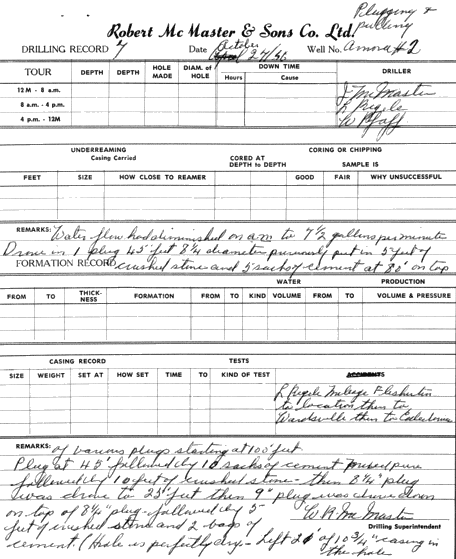 Plugging &
pulling
Robert Mc Master & Sons Co. Ltd.
DRILLING RECORD 7 Date October 24/56 Well No. Amora #2
TOUR DEPTH DEPTH HOLE MADE DIAM. of HOLE DOWN TIME Hours Cause DRILLER
12 M - 8 a.m. J McMaster
8 a.m. - 4 p.m. L Regele
4 p.m. - 12M W Pfaff
UNDERREAMING CORING OR CHIPPING
Casing Carried CORED AT DEPTH to DEPTH SAMPLE IS
FEET SIZE HOW CLOSE TO REAMER GOOD FAIR WHY UNSUCCESSFUL
REMARKS: Water flow had diminished on a.m to 7 1/2 gallons per minute
Drove in 1 plug 45 feet 8 1/4 diameter previously put in 5 feet of
FORMATION RECORD crushed stone and 5 sacks of cement at 80' on top
WATER PRODUCTION
FROM TO THICK-NESS FORMATION FROM TO KIND VOLUME FROM TO VOLUME & PRESSURE
CASING RECORD TESTS
SIZE WEIGHT SET AT HOW SET TIME TO KIND OF TEST ACCIDENTS
L Regele Mileage Flesherton
to location then to
Wardsville then to
REMARKS: of various plugs starting at 100 feet
Plug at 45' followed by 10 sacks of cement mixed pure
followed by 10 feet of crushed stone - then 8 1/4" plug
was drove to 25 feet then 9" plug was drove down
on top of 8 1/4" plug - followed by 5-
feet of crushed stone and 2 bags of
W. R. Mc Master
Drilling Superintendent
cement. (Hole is perfectly dry - Left 20' of 10 3/4" casing in
the hole